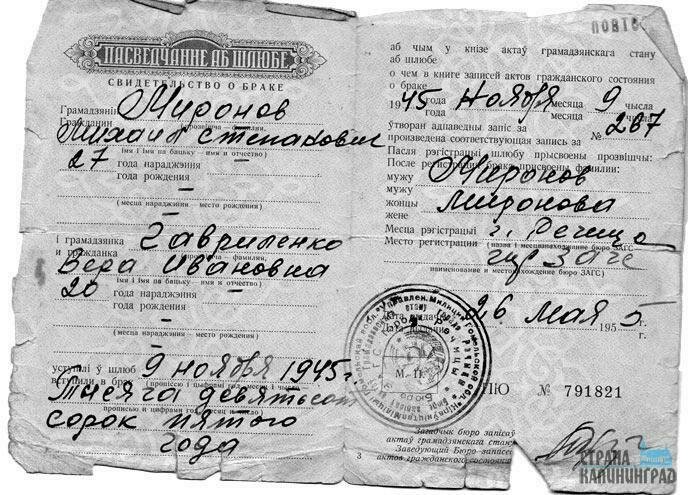 ПАСВЕДЧАННЕ АБ ШЛЮБЕ
СВИДЕТЕЛЬСТВО О БРАКЕ
Грамадзянін Миронов
Гражданин
прозвішча — фамилия,
Михаил Степанович
імя і імя па бацьку — имя и отчество)
27 года нараджэння —
года рождения
—
(месца нараджэння — место рождения)
—
і грамадзянка Гавриленко
и гражданка
прозвішча — фамилия,
Вера Ивановна
імя і імя па бацьку — имя и отчество)
20 года нараджэння —
года рождения
—
(месца нараджэння — место рождения)
уступілі ў шлюб 9 ноября 1945 г
вступили в брак
(прописью и цифрами год, месяц и число)
Тысяча девятьсот
сорок пятого
года
аб чым у кнізе актаў грамадзянскага стану
аб шлюбе
о чем в книге записей актов гражданского состояния
о браке
1945 года ноября месяца 9 чысла
года месяца числа
ўтворан адпаведны запіс за № 287
произведена соответствующая запись за
Пасля рэгістрацыі шлюбу прысвоены прозвішчы:
После регистрации брака присвоены фамилии:
мужу Миронов
мужу
жонцы Миронова
жене
Месца рэгістрацыі г. Речица
Место регистрации
(назва і месцазнаходжэнне бюро ЗАГС
гор ЗАГС
наименование и местонахождение бюро ЗАГС)
Дата выдачы 26 мая 1955 г.
Дата выдачи
М. П.
№ 791821
Загадчык бюро запісаў
актаў грамадзянскага стану
Заведующий Бюро записей
актов гражданского состояния
3
СТРАНА
КАЛИНИНГРАД